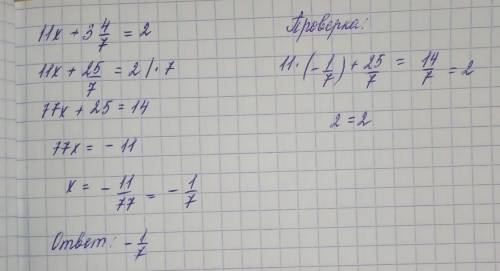 11x + 3 4/7 = 2
11x + 25/7 = 2 | · 7
77x + 25 = 14
77x = - 11
x = - 11/77 = - 1/7
Ответ: - 1/7
Проверка:
11 · (- 1/7) + 25/7 = 14/7 = 2
2 = 2